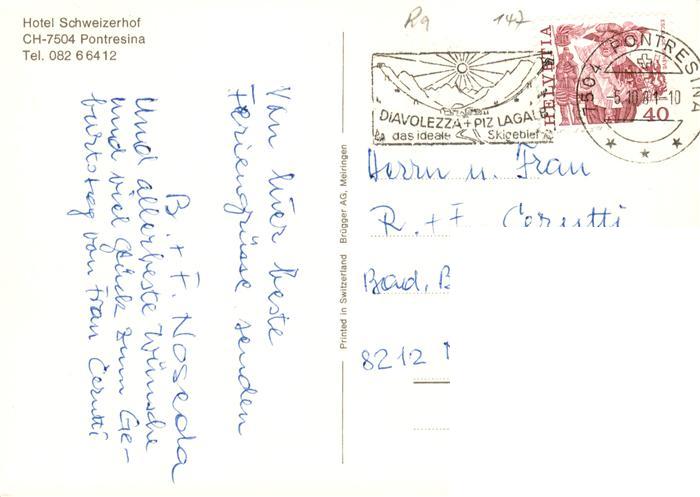 Hotel Schweizerhof
CH-7504 Pontresina
Tel. 082 6 64 12
Von hier beste
Feriengrüsse senden
B. + F. Noseda
und allerbeste Wünsche
und viel Glück zum Ge-
burtstag von Frau Cerutti
Printed in Switzerland Brügger AG, Meiringen
Rg 147
DIAVOLEZZA + PIZ LAGALB
das ideale Skigebiet
HELVETIA
40
7504 PONTRESINA
-5.10.81-10
Herrn u. Frau
R. + F. Cerutti
Bad.
8212